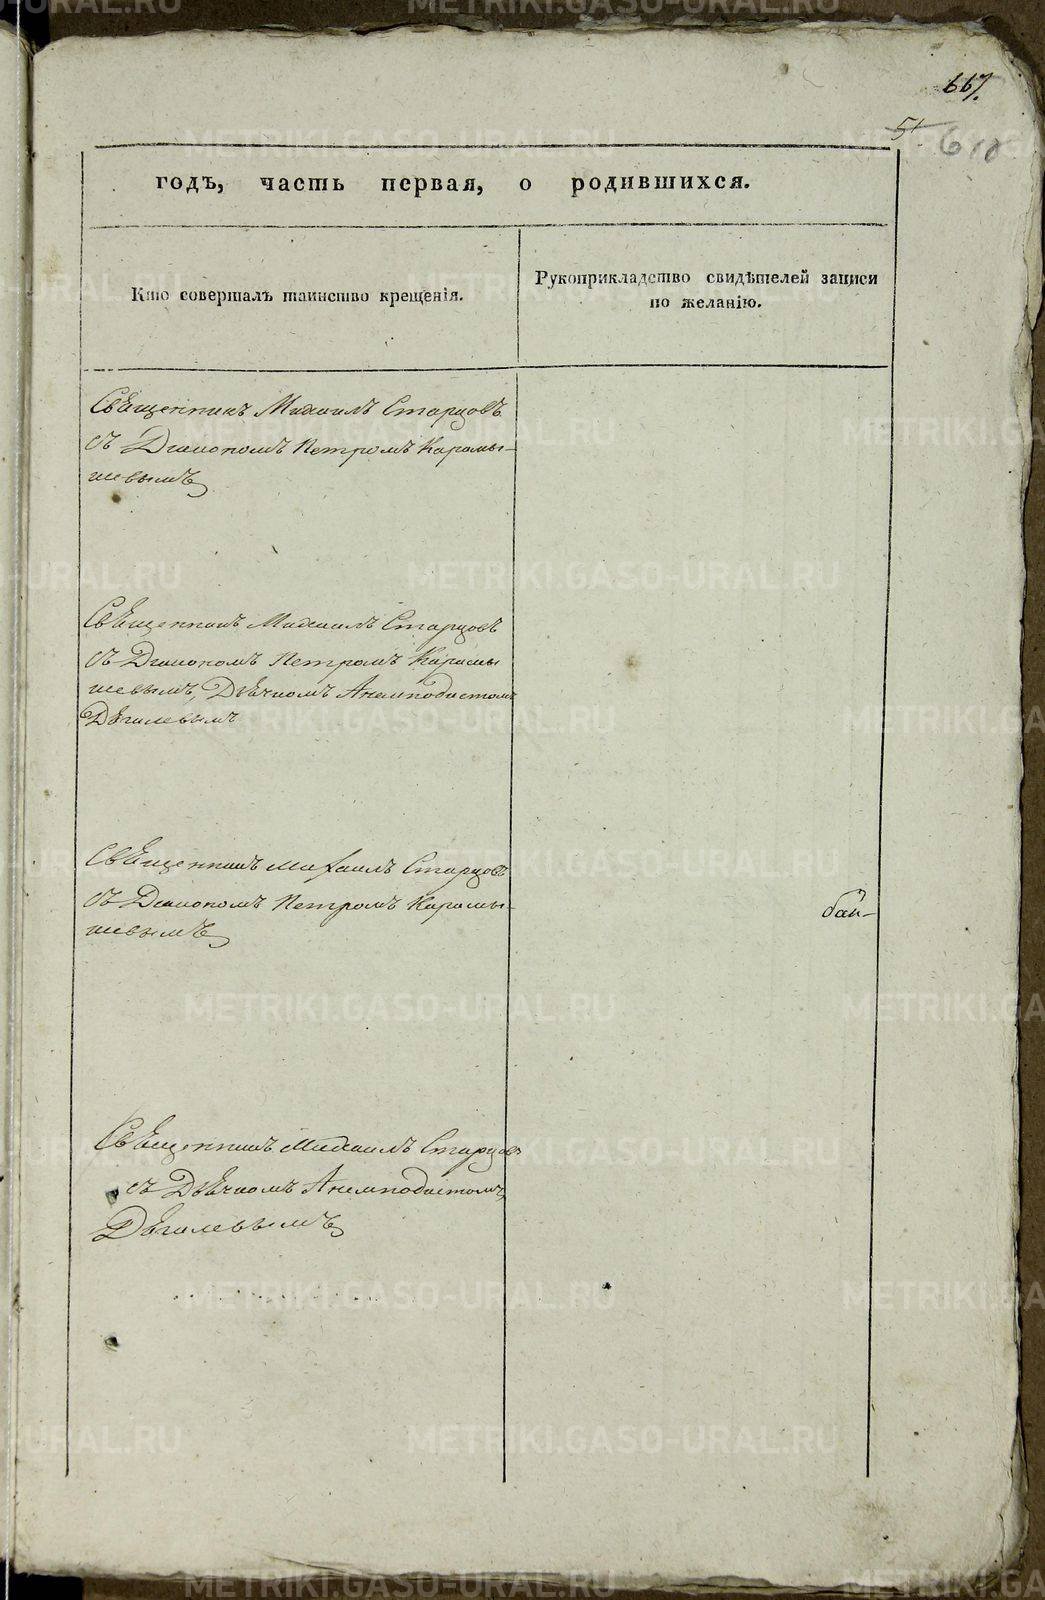 667.
51
610
годъ, часть первая, о родившихся.
Кто совершалъ таинство крещенія.
Рукоприкладство свидѣтелей записи
по желанію.
Священникъ Михаилъ Старцовъ
съ Діакономъ Петромъ Карамы-
шевымъ
Священникъ Михаилъ Старцовъ
съ Діакономъ Петромъ Карамы
шевымъ, Дьячкомъ Анемподистомъ
Дягилевымъ
Священникъ Михаилъ Старцовъ
съ Діакономъ Петромъ Карамы-
шевымъ
бай-
Священникъ Михаилъ Старцовъ
съ Дьячкомъ Анемподистомъ
Дягилевымъ
METRIKI.GASO-URAL.RU